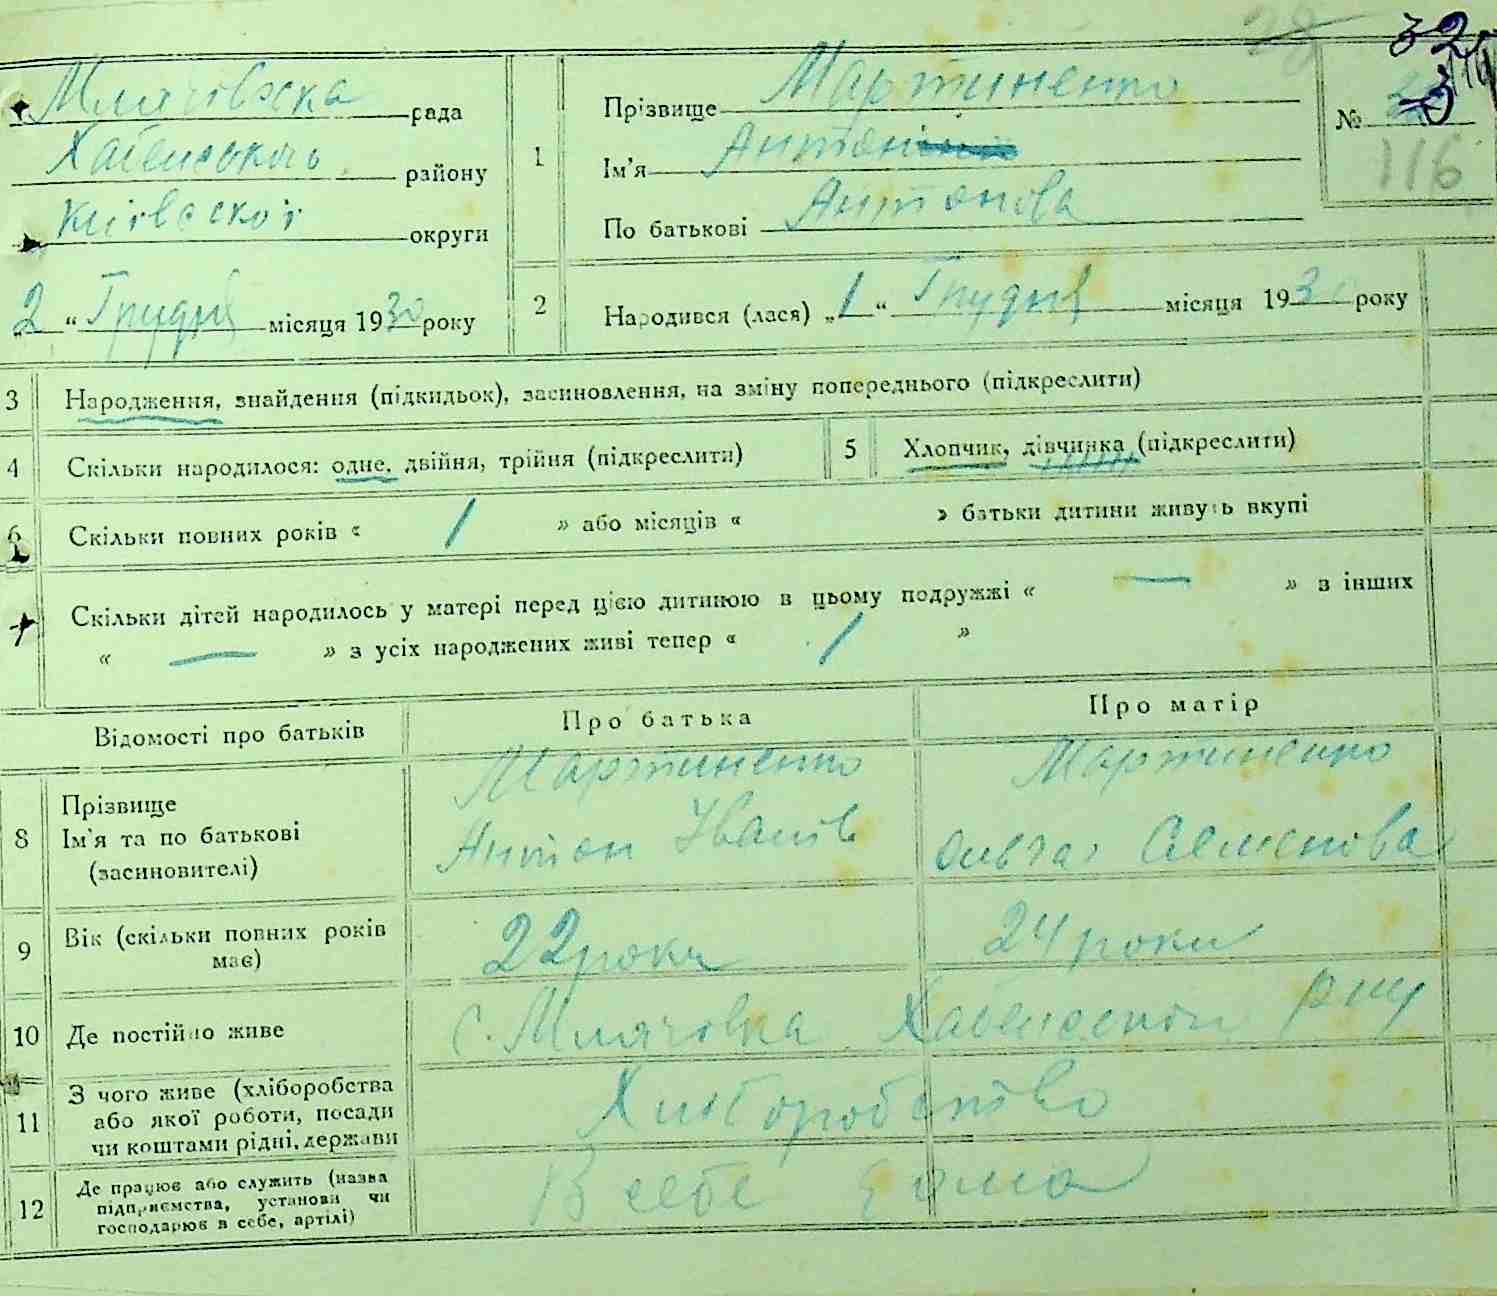 28 32
Млячовска рада
Хабенського району
Київської округи
„2“ Грудня місяця 1930 року
1 Прізвище Мартиненко
Ім'я Антон
По батькові Антонова
№ 3
116
2 Народився (лася) „1“ Грудня місяця 1930 року
3 Народження, знайдення (підкидьок), засиновлення, на зміну попереднього (підкреслити)
4 Скільки народилося: одне, двійня, трійня (підкреслити) 5 Хлопчик, дівчинка (підкреслити)
6 Скільки повних років « 1 » або місяців « » батьки дитини живуть вкупі
Скільки дітей народилось у матері перед цією дитиною в цьому подружжі « — » з інших
« — » з усіх народжених живі тепер « 1 »
Відомості про батьків Про батька Про матір
8 Прізвище
Ім'я та по батькові
(засиновителі)
Мартиненко
Антон Іванів
Мартиненко
Ольга Семенова
9 Вік (скільки повних років
має)
22 роки 24 роки
10 Де постійно живе с. Млячовка Хабенском рну
11 З чого живе (хліборобства
або якої роботи, посади
чи коштами рідні, держави
Хліборобство
12 Де працює або служить (назва
підприємства, установи чи
господарює в себе, артілі)
В себе дома